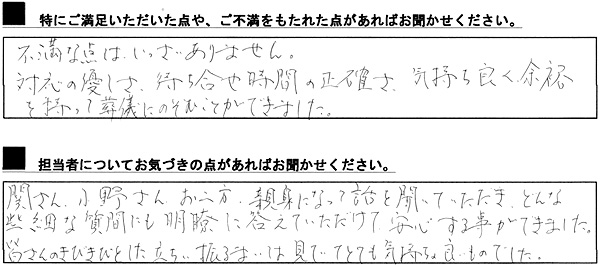 ■ 特にご満足いただいた点や、ご不満をもたれた点があればお聞かせください。
不満な点は、いっさいありません。
対応の優しさ、待ち合せ時間の正確さ、気持ち良く、余裕
を持って葬儀にのぞむことができました。
■ 担当者についてお気づきの点があればお聞かせください。
関さん、小野さん、お二方、親身になって話を聞いていただき、どんな
些細な質問にも明瞭に答えていただけて、安心する事ができました。
皆さんのきびきびとした立ち振るまいは見ていてとても気持ち良いものでした。